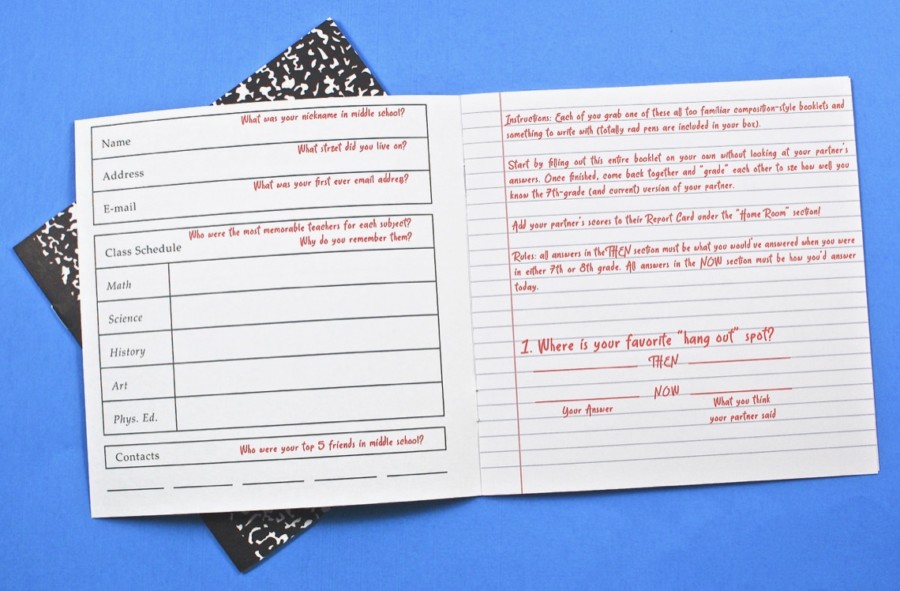 What was your nickname in middle school?
Name
What street did you live on?
Address
What was your first ever email address?
E-mail
Who were the most memorable teachers for each subject?
Class Schedule
Why do you remember them?
Math
Science
History
Art
Phys. Ed.
Contacts
Who were your top 5 friends in middle school?
Instructions: Each of you grab one of these all too familiar composition-style booklets and
something to write with (totally rad pens are included in your box).
Start by filling out this entire booklet on your own without looking at your partner's
answers. Once finished, come back together and "grade" each other to see how well you
know the 7th-grade (and current) version of your partner.
Add your partner's scores to their Report Card under the "Home Room" section!
Rules: all answers in the THEN section must be what you would've answered when you were
in either 7th or 8th grade. All answers in the NOW section must be how you'd answer
today.
1. Where is your favorite "hang out" spot?
THEN
NOW
Your Answer
What you think
your partner said